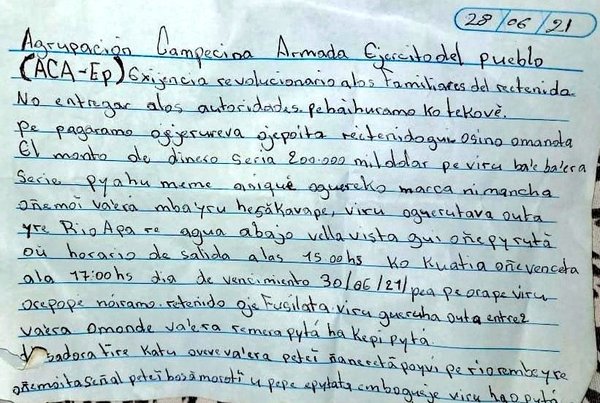 28/06/21
Agrupación Campecina Armada Ejercito del pueblo
(ACA-Ep) Exijencia revolucionario alos Familiares del rectenida
No entregar alos autoridades pehaihuramo ko tekovẽ.
pe pagáramo ojejerureva ojepoita rectenidogui osino omanota
El monto de dinero seria 200.000 mil dolar pe viru ba'e ba'era
Serie pyahu meme aniquẽ oguereko marca ni mancha
oñemoĩ va'erá mba'yru hesãkavape, viru oguerutava outa
yre Rio Apa re agua abajo vella vista gui oñepyrutã
oú horario de salida alas 15:00 hs ko Kuatia oñevenceta
ala 17:00 hs dia de vencimiento 30/06/21/ pea pe orape viru
ocepope nóiramo. retenido oje Fusilata. viru gueruha outa entre 2
va'era omonde va'era remera pytá ha kepi pytá.
Tire Katu oveve va'era peteĩ ñaneretã poyvi pe rio rembeyre
oñemoita señal peteĩ bosa morotĩ u pepe epytata emboguejy viru ha o pytá